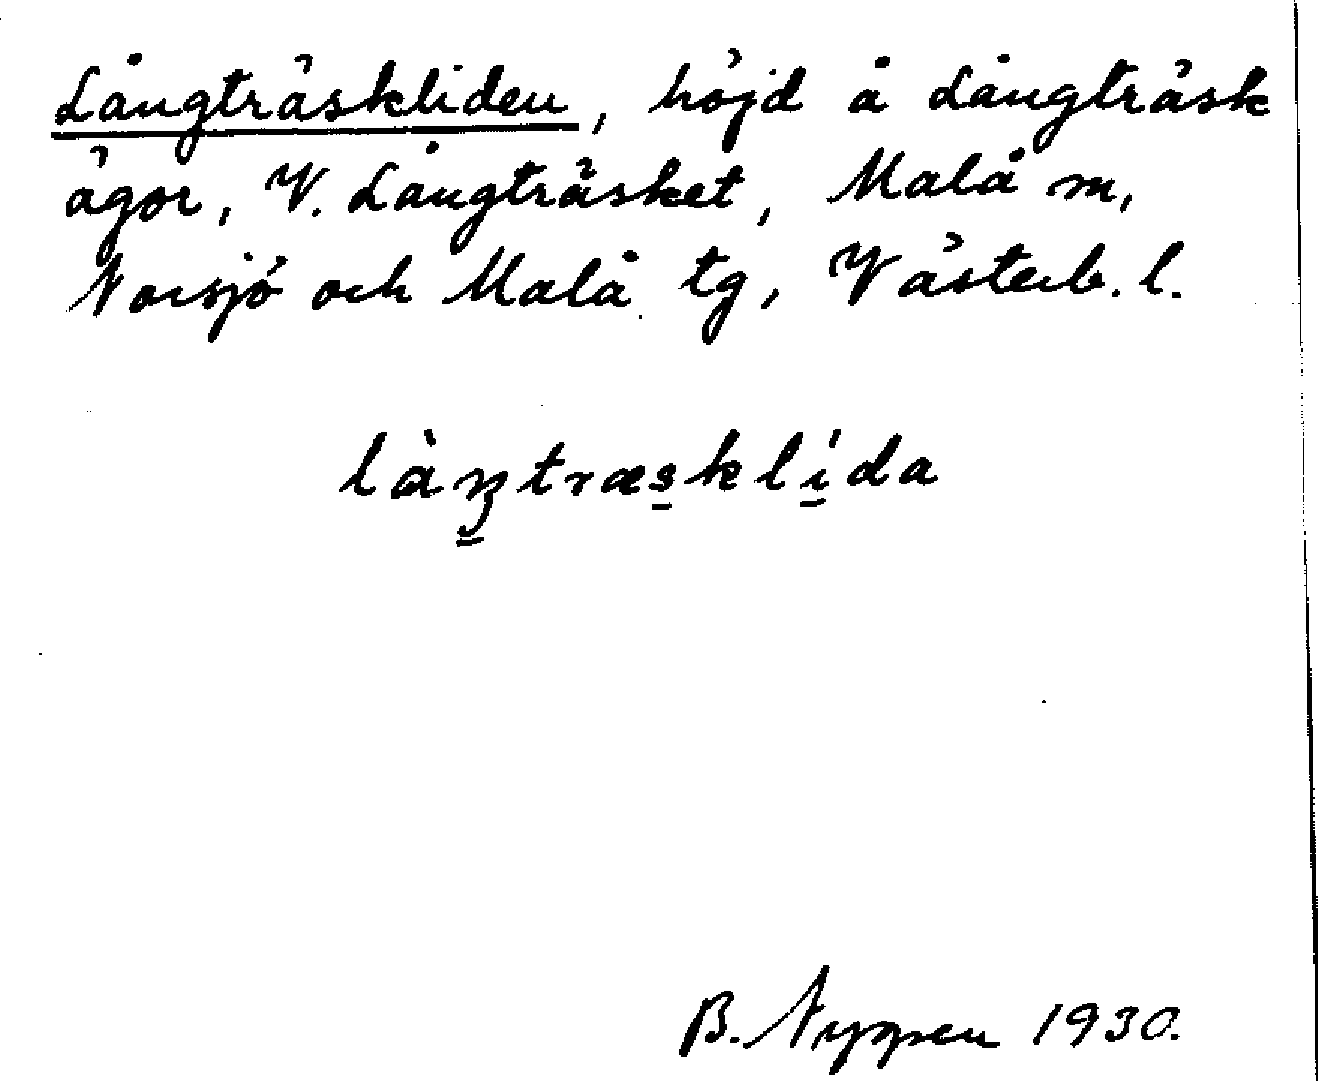 Långträskliden, höjd å Långträsk
ägor, V. Långträsket, Malå m,
Norsjö och Malå tg, Västerb. l.
làŋtræsklída
B. Nygren 1930.